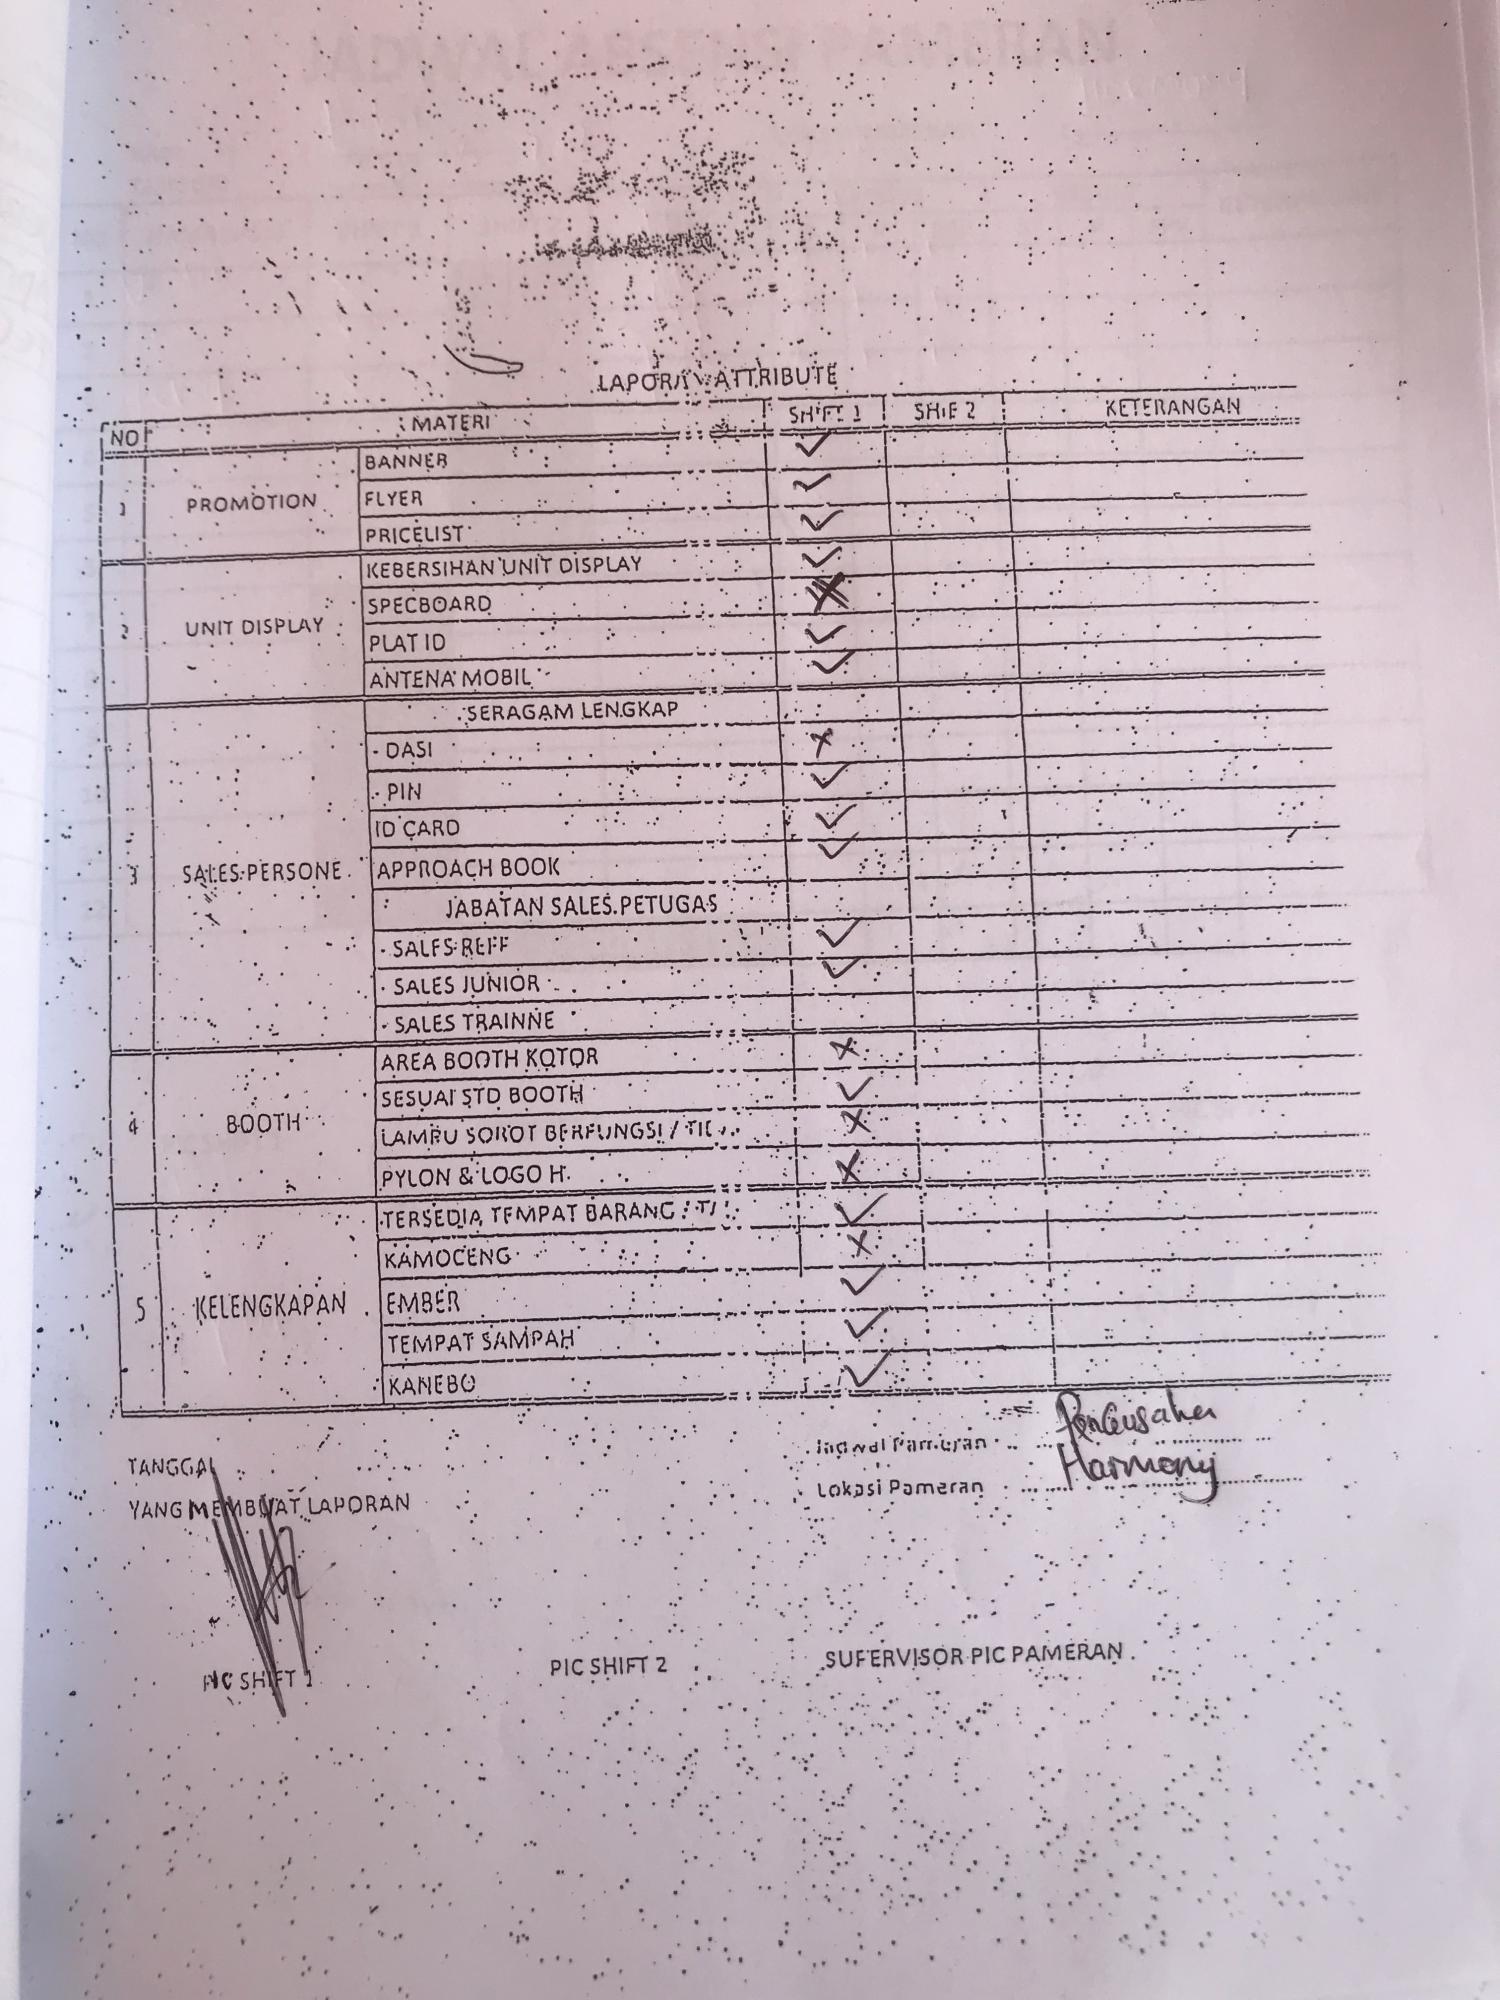 LAPORAN ATTRIBUTE
NO MATERI SHIFT 1 SHIF 2 KETERANGAN
1 PROMOTION BANNER ✓
FLYER ✓
PRICELIST ✓
2 UNIT DISPLAY KEBERSIHAN UNIT DISPLAY ✓
SPECBOARD X
PLAT ID ✓
ANTENA MOBIL ✓
3 SALES PERSONE SERAGAM LENGKAP
- DASI X
- PIN ✓
ID CARD ✓
APPROACH BOOK ✓
JABATAN SALES PETUGAS
- SALES REFF ✓
- SALES JUNIOR ✓
- SALES TRAINNE
4 BOOTH AREA BOOTH KOTOR X
SESUAI STD BOOTH ✓
LAMPU SOROT BERFUNGSI / X
PYLON & LOGO H X
5 KELENGKAPAN TERSEDIA TEMPAT BARANG / ✓
KAMOCENG X
EMBER ✓
TEMPAT SAMPAH ✓
KANEBO ✓
Jadwal Pameran
Lokasi Pameran Harmony
TANGGAL
YANG MEMBUAT LAPORAN
PIC SHIFT 1 PIC SHIFT 2 SUPERVISOR PIC PAMERAN